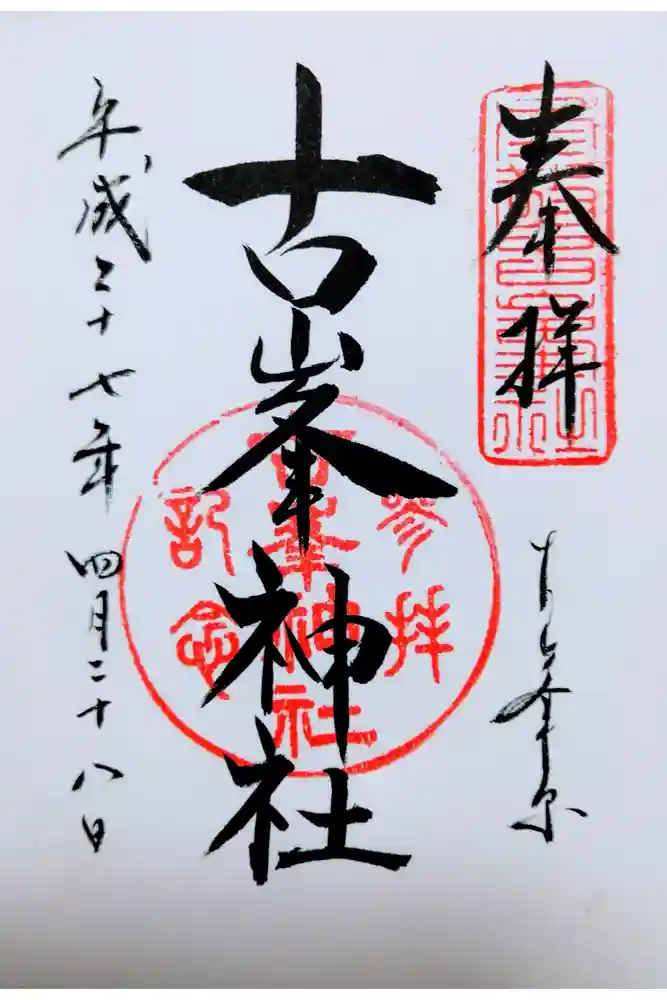 奉拝
古峯原
古峯神社
参拝
古峯神社
記念
平成二十七年四月二十八日